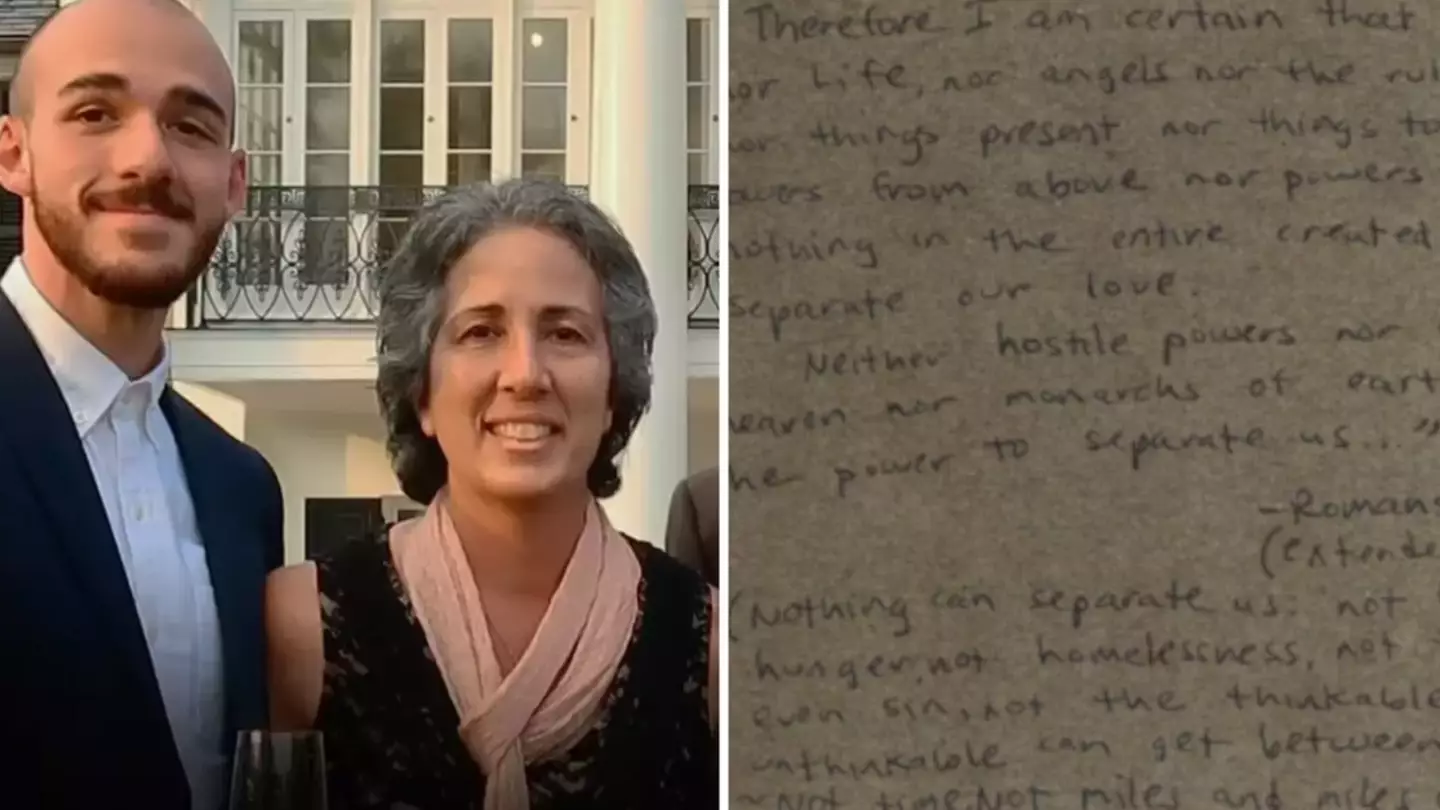 Therefore I am certain that
nor Life, nor angels nor the rul
nor things present nor things to
owers from above nor powers
nothing in the entire created
separate our love.
Neither hostile powers nor
heaven nor monarchs of eart
he power to separate us..."
-Romans
(extende
(Nothing can separate us: not
hunger, not homelessness, not
even sin, not the thinkable
unthinkable can get between
Not time, Not miles and miles